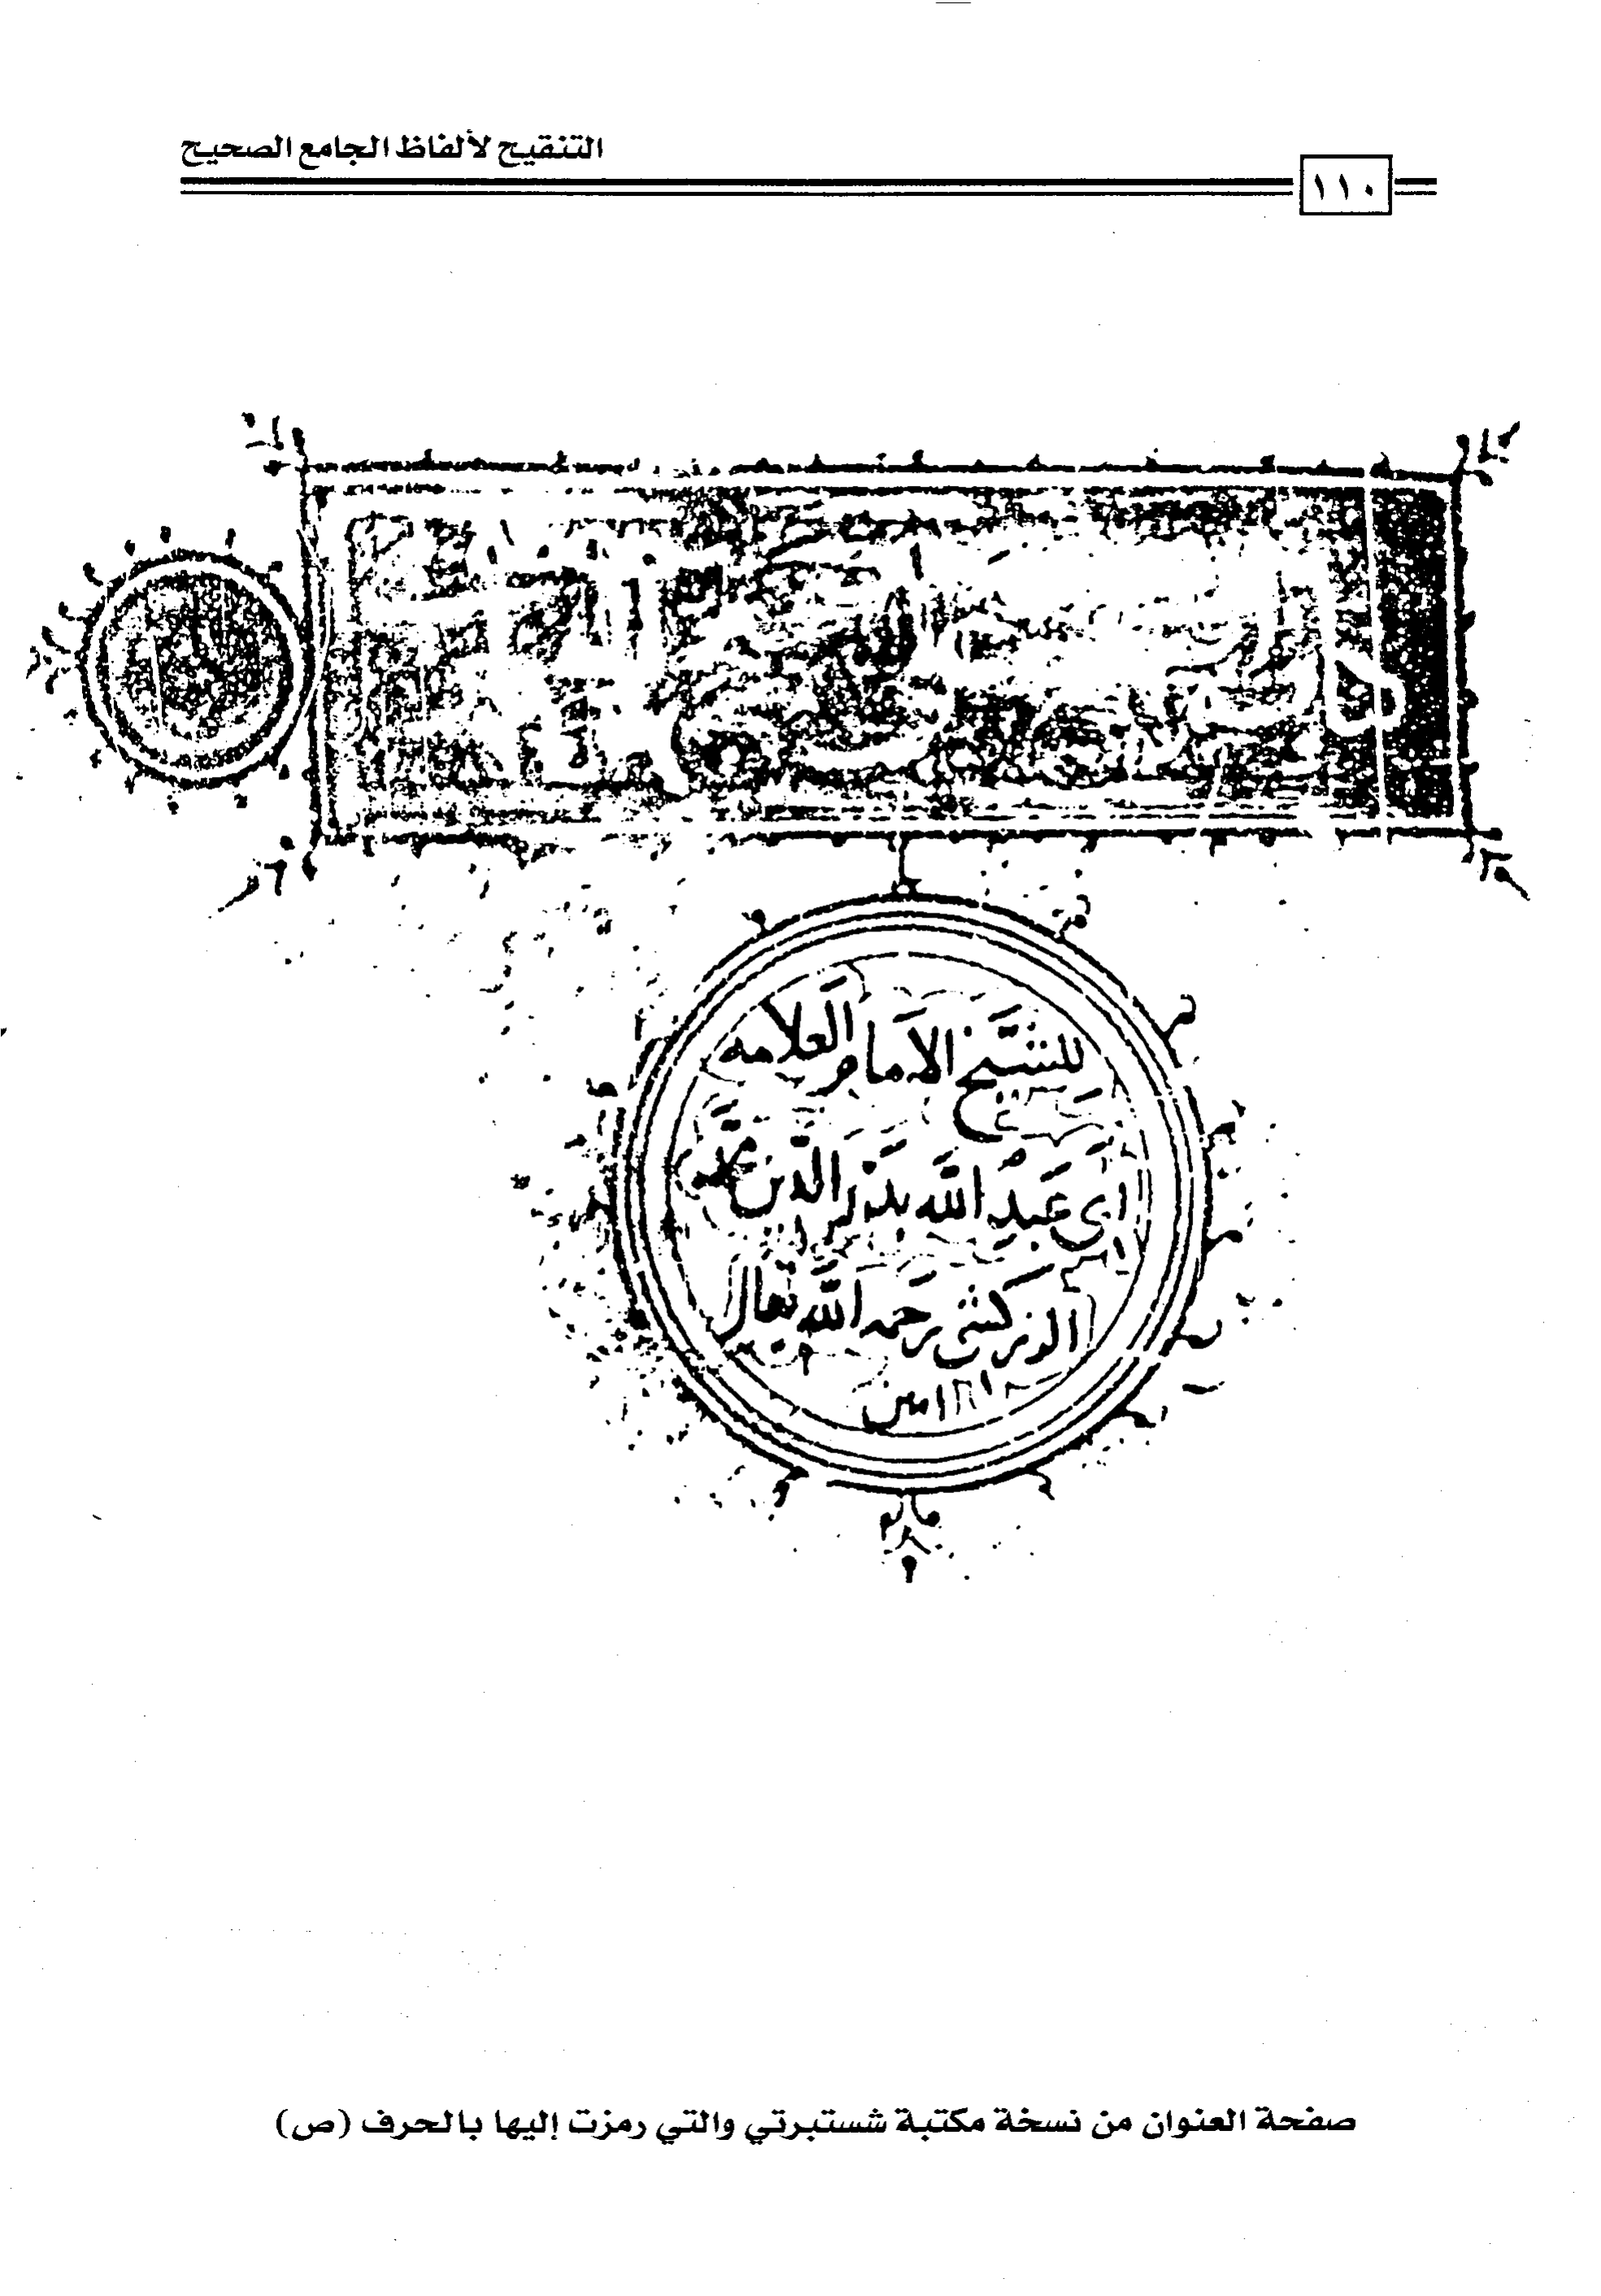 التنقيح لألفاظ الجامع الصحيح
١١٠
للشيخ الامام العلامه
ابى عبد الله بدر الدين محمد
الزركشى رحمه الله تعالى
امين
صفحة العنوان من نسخة مكتبة شستبرتي والتي رمزت إليها بالحرف (ص)